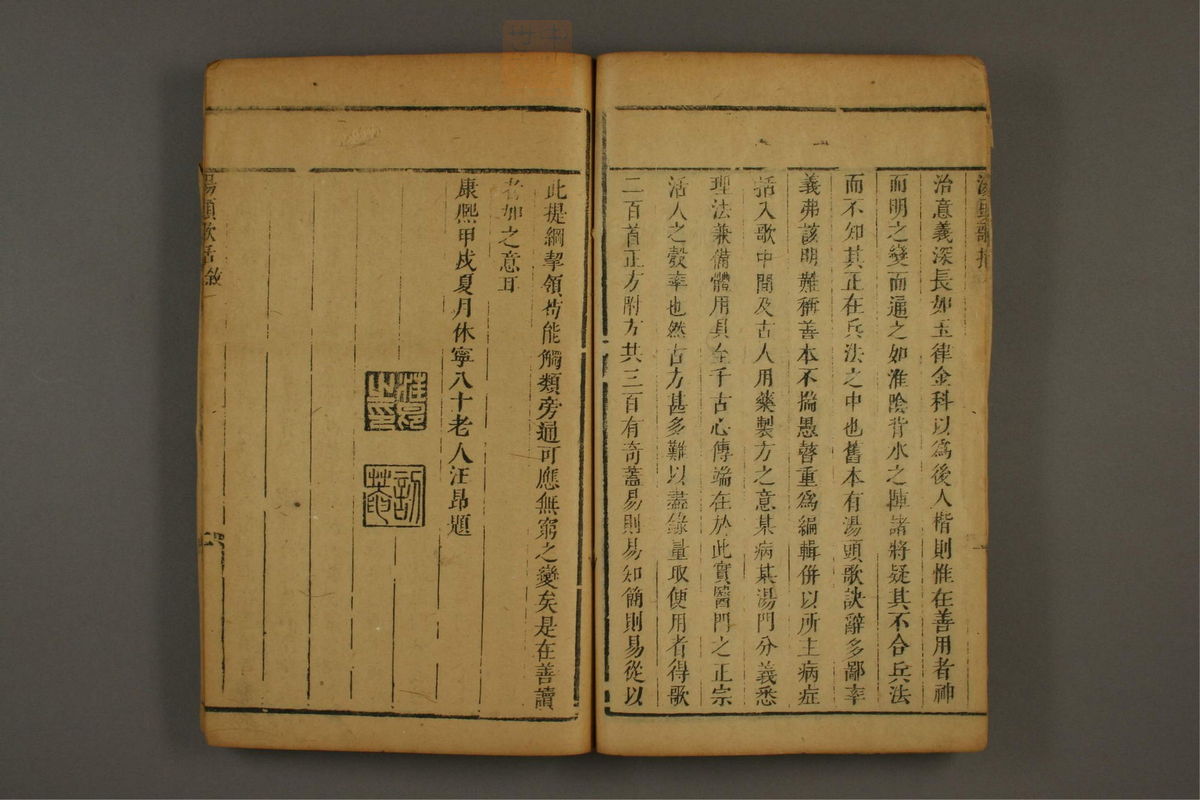 治意義深長如玉律金科以為後人楷則惟在善用者神
而明之變而通之如淮陰背水之陣諸將疑其不合兵法
而不知其正在兵法之中也舊本有湯頭歌訣辭多鄙率
義弗該明難稱善本不揣愚瞽重為編輯併以所主病症
括入歌中間及古人用藥製方之意某病某湯門分義悉
理法兼備體用具全千古心傳端在於此實醫門之正宗
活人之彀率也然古方甚多難以盡錄量取便用者得歌
二百首正方附方共三百有奇蓋易則易知簡則易從以
此提綱挈領苟能觸類旁通可應無窮之變矣是在善讀
者如之意耳
康熙甲戌夏月休寧八十老人汪昂題
汪昂之印
訒菴
湯頭歌括敘
二